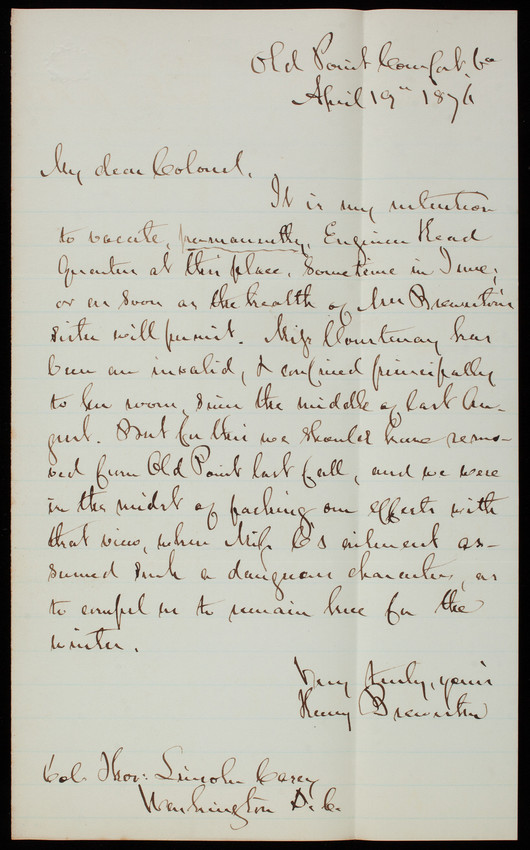 Old Point Comfort, Va
April 19th 1876
My dear Colonel,
It is my intention
to vacate, permanently, Engineer Head
Quarters at this place, sometime in June,
or as soon as the health of Mrs Brewerton's
sister will permit. Miss Courtenay has
been an invalid, & confined principally
to her room, since the middle of last Au-
gust. But for this we should have remo-
ved from Old Point last fall, and we were
in the midst of packing our effects with
that view, when Miss C's ailment as-
sumed such a dangerous character, as
to compel us to remain here for the
winter.
Very truly, yours
Henry Brewerton
Col. Thos: Lincoln Casey
Washington D.C.